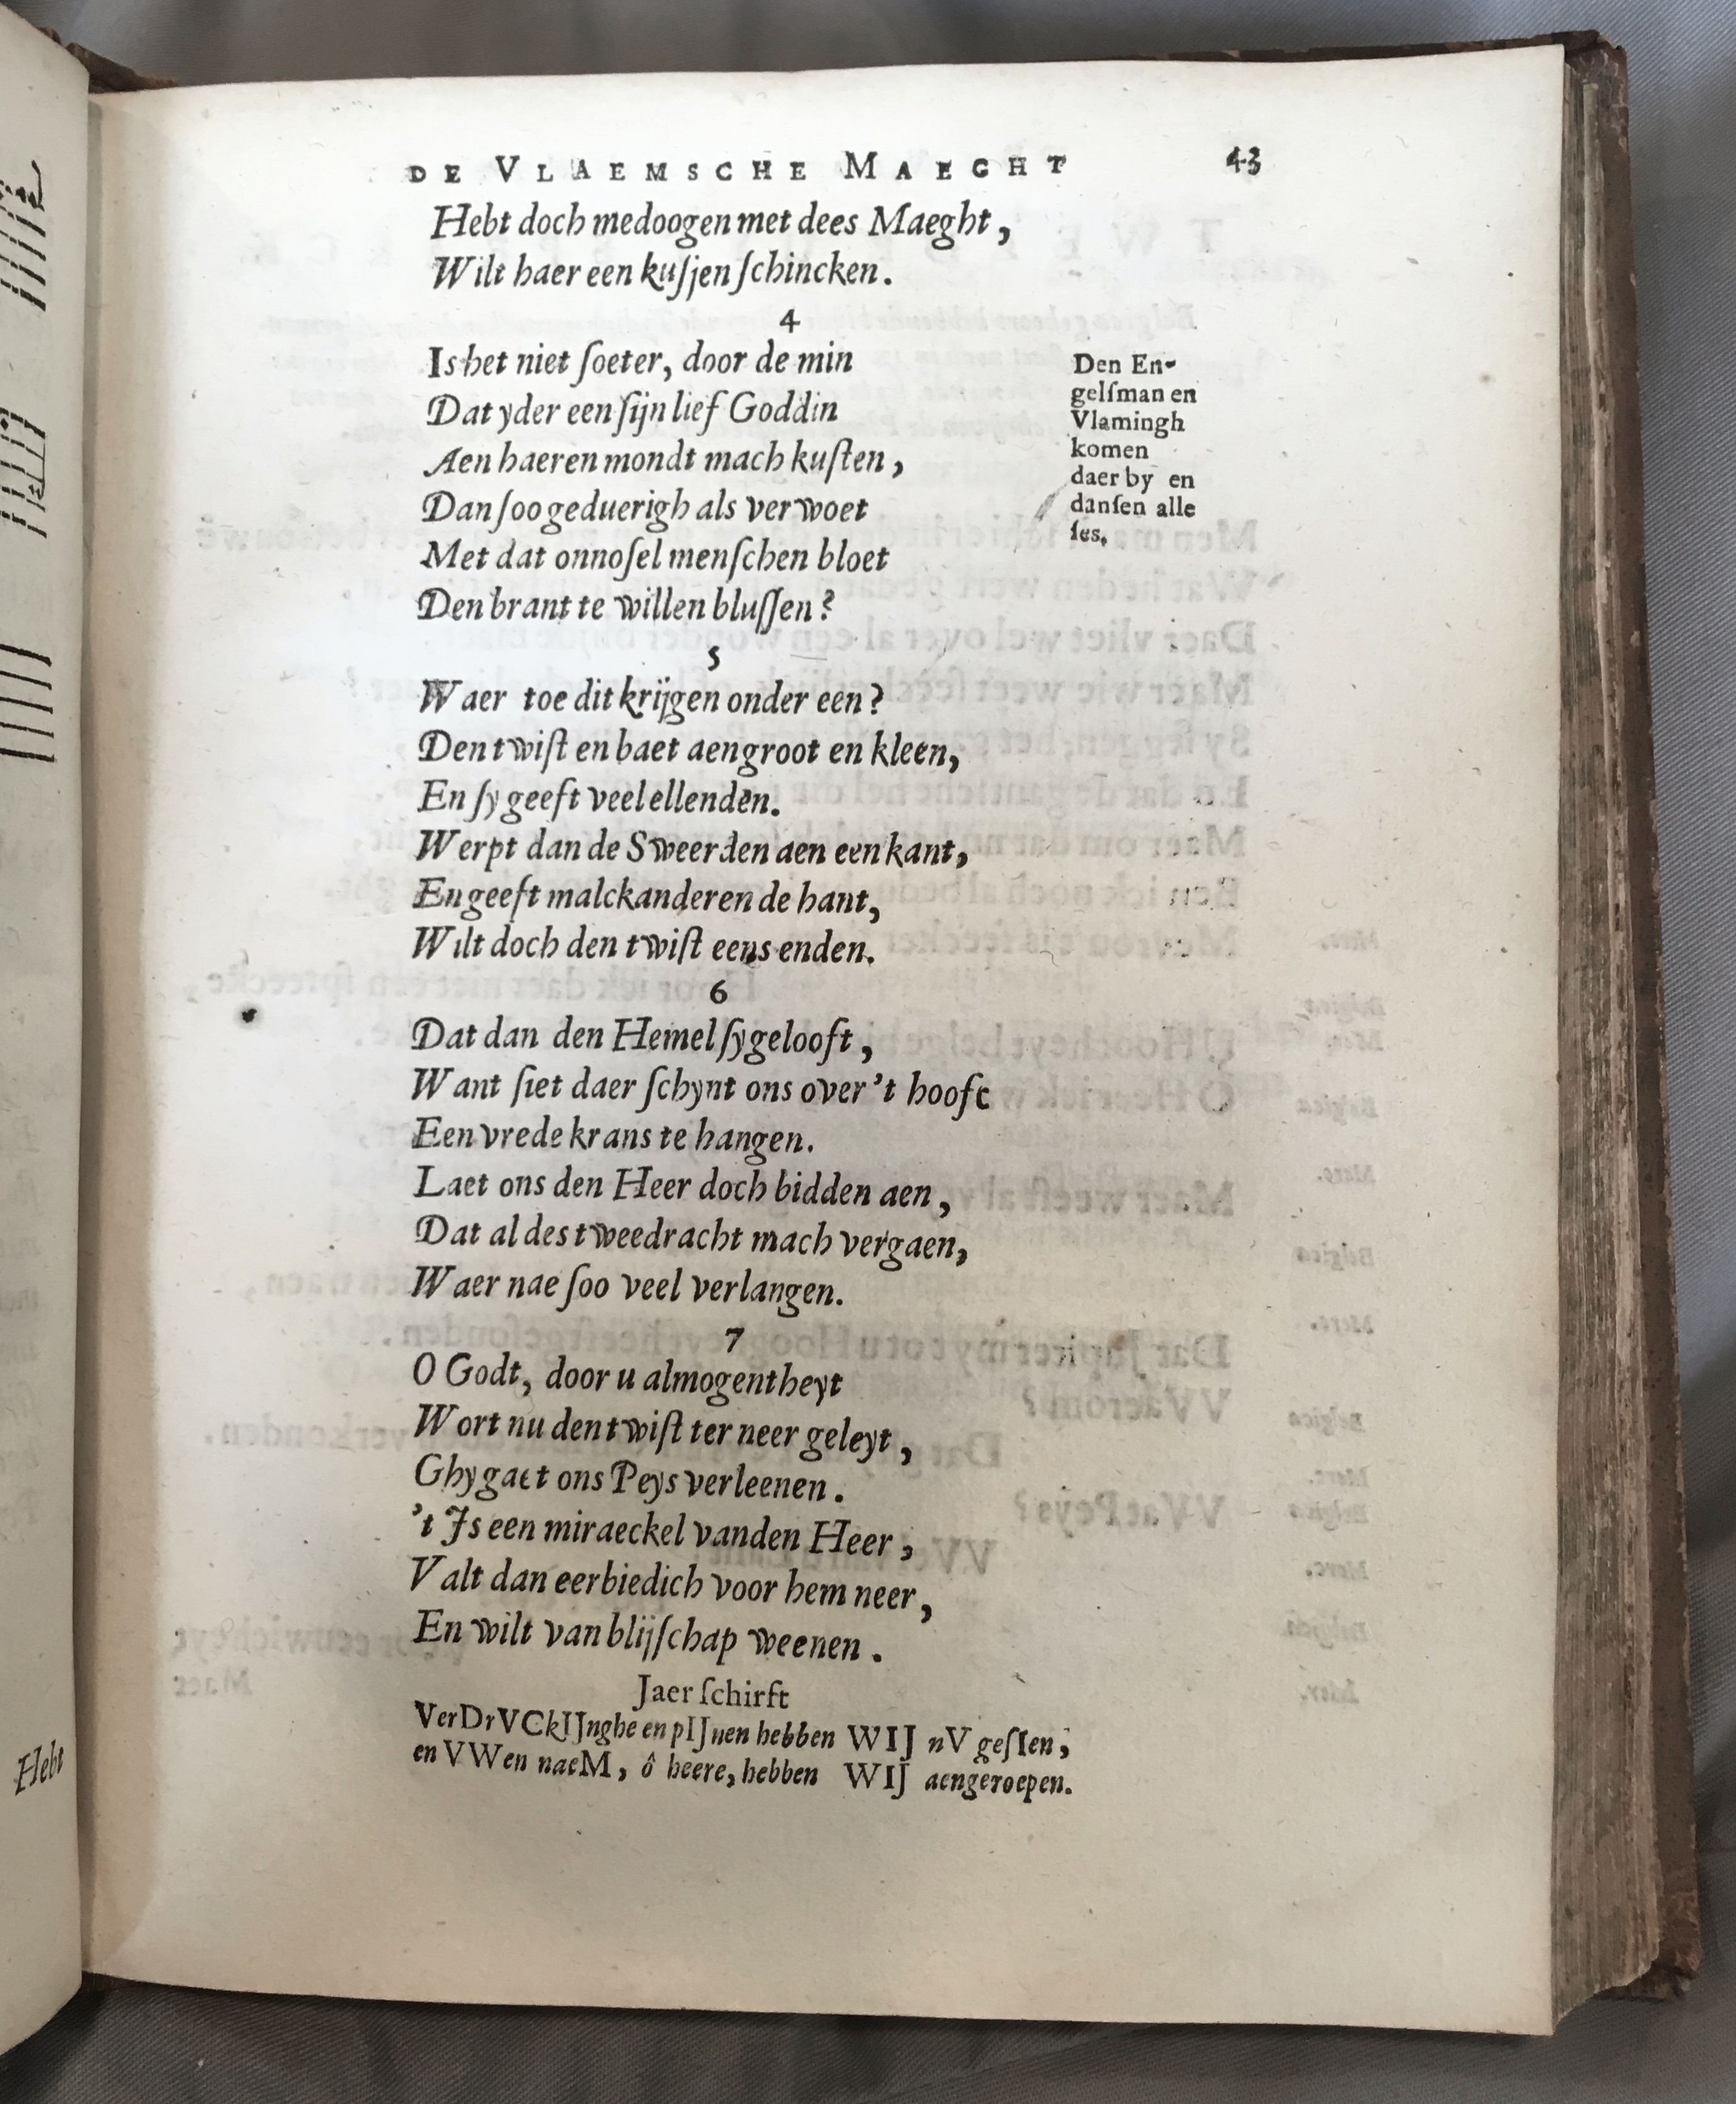 DE VLAEMSCHE MAEGHT 43
Hebt doch medoogen met dees Maeght,
Wilt haer een kuſjen ſchincken.
4
Is het niet ſoeter, door de min
Dat yder een ſijn lief Goddin
Aen haeren mondt mach kuſten,
Dan ſoo geduerigh als verwoet
Met dat onnoſel menſchen bloet
Den brant te willen bluſſen?
Den En-
gelſman en
Vlamingh
komen
daer by en
danſen alle
ſes.
5
Waer toe dit krijgen onder een?
Den twiſt en baet aen groot en kleen,
En ſy geeft veel ellenden.
Werpt dan de Sweerden aen een kant,
En geeft malckanderen de hant,
Wilt doch den twiſt eens enden.
6
Dat dan den Hemel ſy gelooft,
Want ſiet daer ſchynt ons over 't hooft
Een vrede krans te hangen.
Laet ons den Heer doch bidden aen,
Dat al des tweedracht mach vergaen,
Waer nae ſoo veel verlangen.
7
O Godt, door u almogentheyt
Wort nu den twiſt ter neer geleyt,
Ghy gaet ons Peys verleenen.
't Is een miraeckel vanden Heer,
Valt dan eerbiedich voor hem neer,
En wilt van blijſchap weenen.
Jaer ſchirft
VerDrVCkIJnghe en pIJnen hebben WIJ nV geſIen,
en VWen naeM, ô heere, hebben WIJ aengeroepen.
Hebt